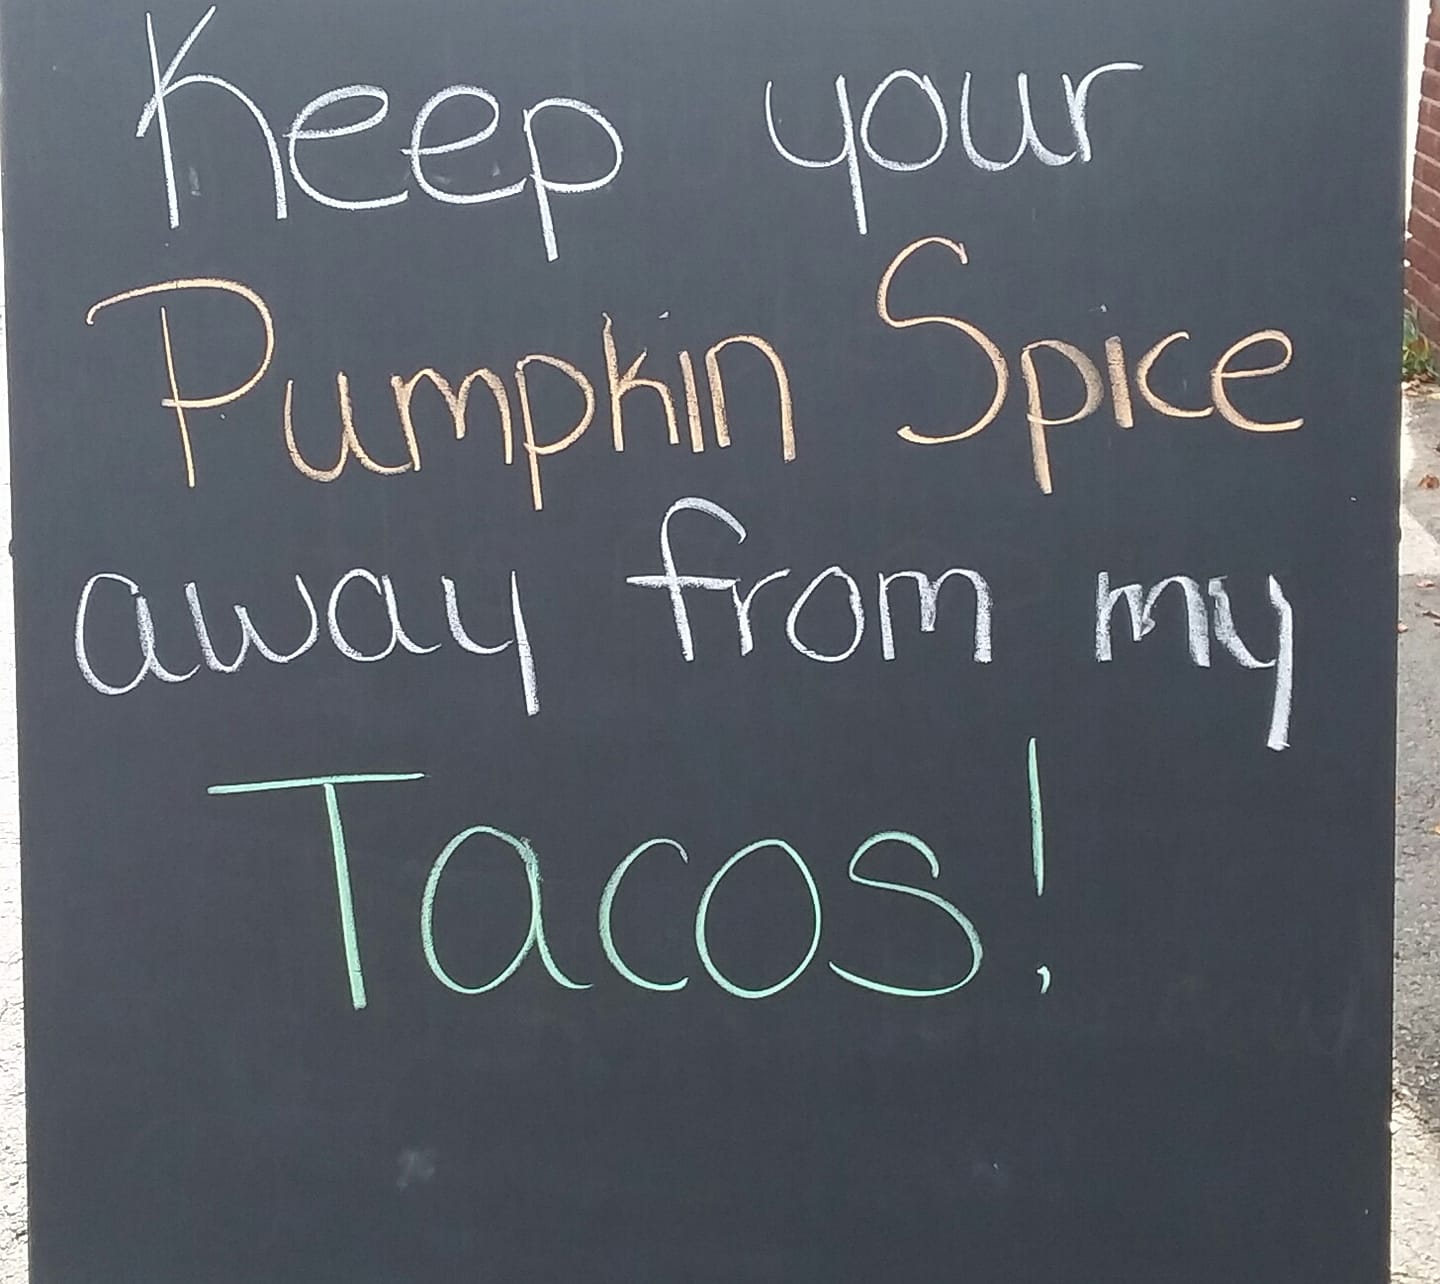 Keep your
Pumpkin Spice
away from my
Tacos!